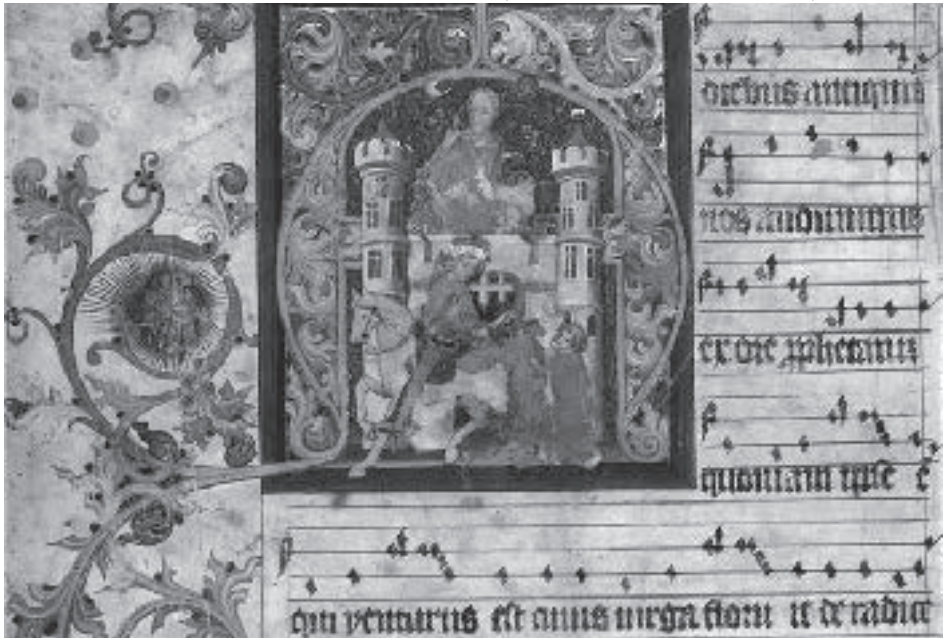 diebus antiquis
nos audivimus
ex ore pphetanti
quoniam ipse e
qui venturus est cuius virga floru it de radice